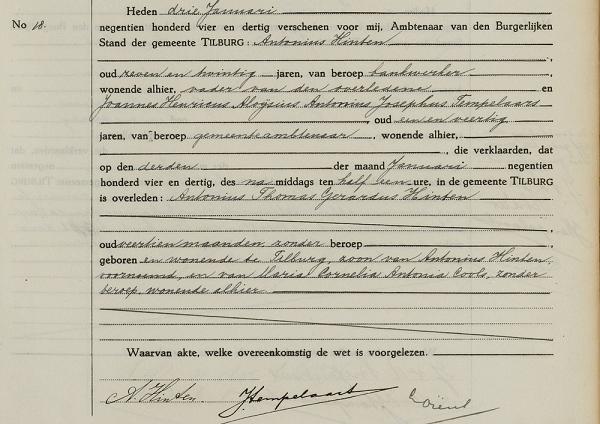 Heden drie Januari
No 18.
negentien honderd vier en dertig verschenen voor mij, Ambtenaar van den Burgerlijken
Stand der gemeente TILBURG: Antonius Hinten
,
oud zeven en twintig jaren, van beroep bankwerker,
wonende alhier, vader van den overledene en
Joannes Henricus Aloÿsius Antonius Josephus Tempelaars
, oud een en veertig
jaren, van beroep gemeenteambtenaar, wonende alhier,
, die verklaarden, dat
op den derden der maand Januari negentien
honderd vier en dertig, des na middags ten half een ure, in de gemeente TILBURG
is overleden: Antonius Thomas Gerardus Hinten
,
oud veertien maanden, zonder beroep,
geboren en wonende te Tilburg, zoon van Antonius Hinten,
voornoemd, en van Maria Cornelia Antonia Cools, zonder
beroep, wonende alhier
Waarvan akte, welke overeenkomstig de wet is voorgelezen.
A. Hinten. JTempelaars